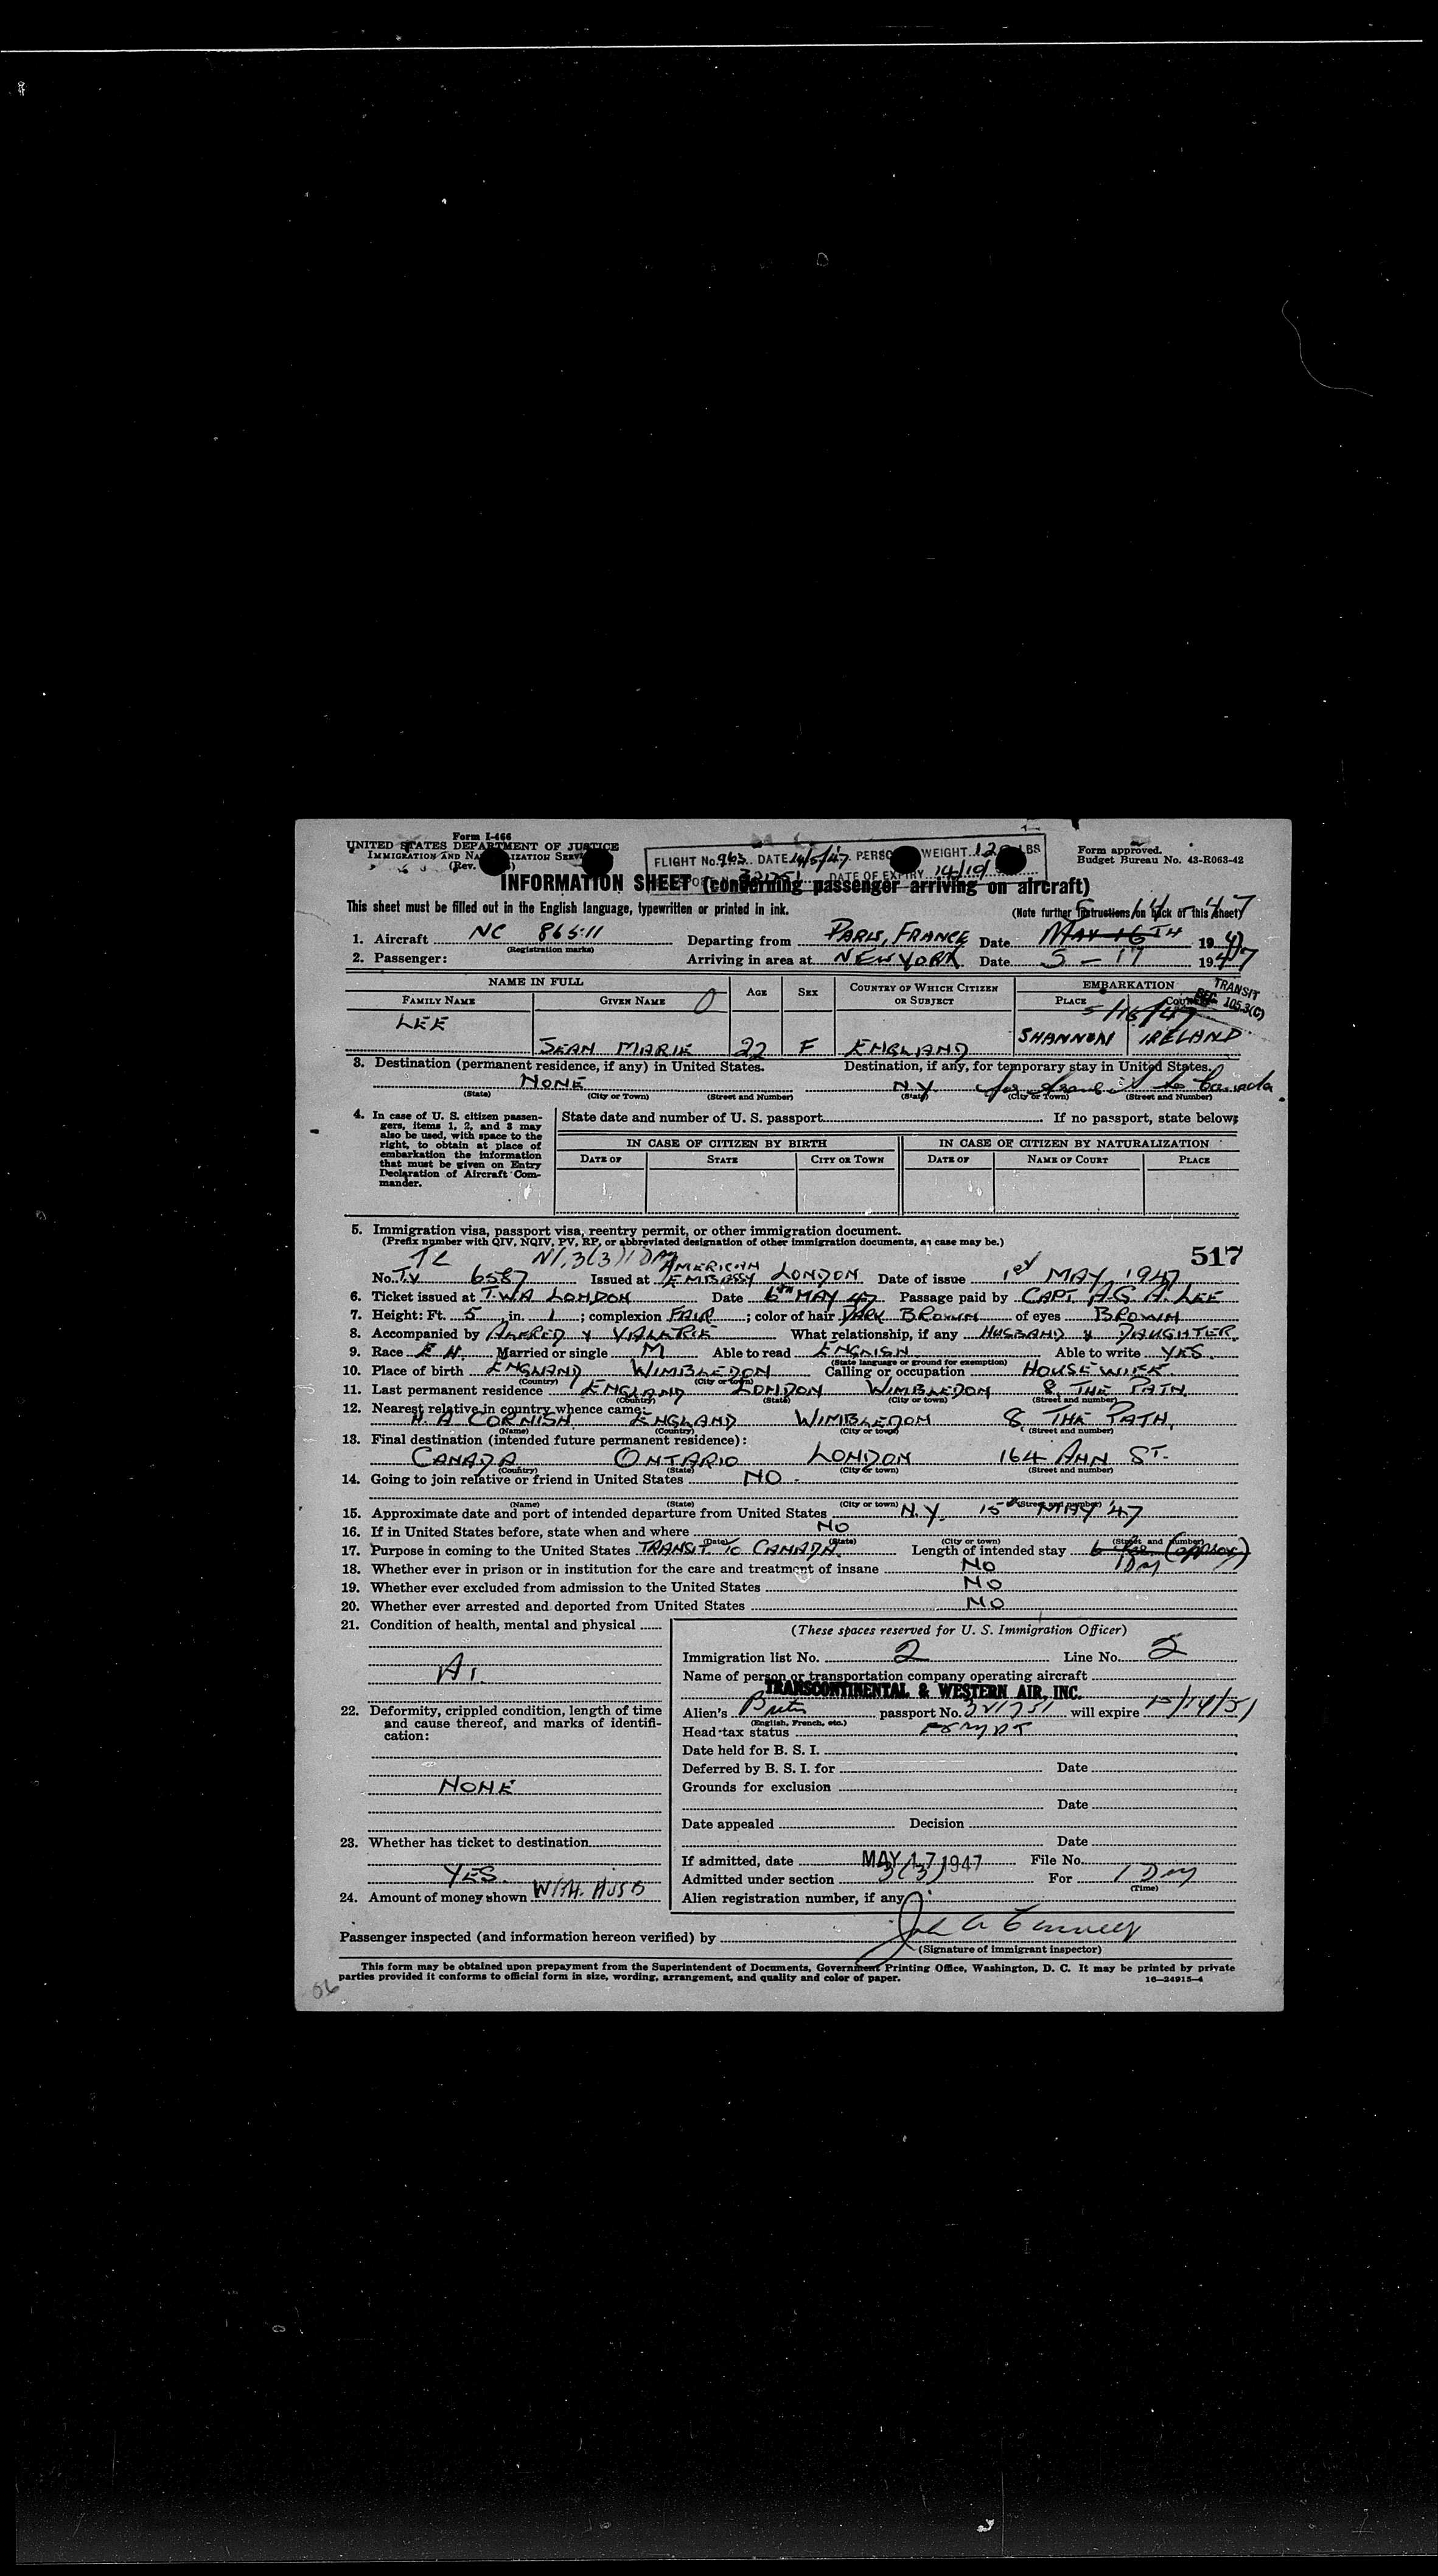 Form I-466
UNITED STATES DEPARTMENT OF JUSTICE
IMMIGRATION AND NATURALIZATION SERVICE
(Rev.
FLIGHT No. 963 DATE 14/5/47 PERSO WEIGHT 12 LBS
321751 DATE OF EXPIRY 14/10/
Form approved.
Budget Bureau No. 43-R063-42
INFORMATION SHEET (concerning passenger arriving on aircraft)
This sheet must be filled out in the English language, typewritten or printed in ink.
(Note further instructions on back of this sheet)
1. Aircraft NC 86511 Departing from PARIS, FRANCE Date MAY 16TH 1947
(Registration marks)
2. Passenger: Arriving in area at NEW YORK Date 5-17 1947
NAME IN FULL AGE SEX COUNTRY OF WHICH CITIZEN OR SUBJECT EMBARKATION
FAMILY NAME GIVEN NAME PLACE COUNTRY
TRANSIT
SEC 105.3(C)
5/16/47
LEE JEAN MARIE 22 F ENGLAND SHANNON IRELAND
3. Destination (permanent residence, if any) in United States. Destination, if any, for temporary stay in United States.
NONE N.Y. for transit to Canada
(State) (City or Town) (Street and Number) (State) (City or Town) (Street and Number)
4. In case of U. S. citizen passengers, items 1, 2, and 3 may also be used, with space to the right, to obtain at place of embarkation the information that must be given on Entry Declaration of Aircraft Commander.
State date and number of U. S. passport If no passport, state below:
IN CASE OF CITIZEN BY BIRTH IN CASE OF CITIZEN BY NATURALIZATION
DATE OF STATE CITY OR TOWN DATE OF NAME OF COURT PLACE
5. Immigration visa, passport visa, reentry permit, or other immigration document.
(Prefix number with QIV, NQIV, PV, RP, or abbreviated designation of other immigration documents, as case may be.)
517
3(3) 1 DAY
No. T.V 6587 Issued at AMERICAN EMBASSY LONDON Date of issue 1st MAY 1947
6. Ticket issued at T.W.A LONDON Date 6TH MAY 47 Passage paid by CAPT. A.G. A. LEE
7. Height: Ft. 5 in. 1; complexion FAIR; color of hair DARK BROWN of eyes BROWN
8. Accompanied by ALFRED & VALERIE What relationship, if any HUSBAND & DAUGHTER
9. Race E N. Married or single M Able to read ENGLISH Able to write YES
(State language or ground for exemption)
10. Place of birth ENGLAND WIMBLEDON Calling or occupation HOUSEWIFE
(Country) (City or town)
11. Last permanent residence ENGLAND LONDON WIMBLEDON 8 THE PATH
(Country) (State) (City or town) (Street and number)
12. Nearest relative in country whence came:
H. A CORNISH ENGLAND WIMBLEDON 8 THE PATH,
(Name) (Country) (City or town) (Street and number)
13. Final destination (intended future permanent residence):
CANADA ONTARIO LONDON 164 ANN ST.
(Country) (State) (City or town) (Street and number)
14. Going to join relative or friend in United States NO
(Name) (State) (City or town) (Street and number)
15. Approximate date and port of intended departure from United States N.Y. 15th MAY '47
16. If in United States before, state when and where NO
(Date) (State) (City or town) (Street and number)
17. Purpose in coming to the United States TRANSIT TO CANADA Length of intended stay (approx)
1 Day
18. Whether ever in prison or in institution for the care and treatment of insane NO
19. Whether ever excluded from admission to the United States NO
20. Whether ever arrested and deported from United States NO
21. Condition of health, mental and physical
A1.
22. Deformity, crippled condition, length of time and cause thereof, and marks of identification:
NONE
23. Whether has ticket to destination
YES.
24. Amount of money shown WITH HUSB
(These spaces reserved for U. S. Immigration Officer)
Immigration list No. 2 Line No. 5
Name of person or transportation company operating aircraft
TRANSCONTINENTAL & WESTERN AIR, INC.
Alien's Brit passport No. 321751 will expire 10/14/51
(English, French, etc.)
Head tax status EXMPT
Date held for B. S. I.
Deferred by B. S. I. for Date
Grounds for exclusion
Date
Date appealed Decision
Date
If admitted, date MAY 17 1947 File No.
Admitted under section 3(3) For 1 Day
(Time)
Alien registration number, if any
Passenger inspected (and information hereon verified) by
(Signature of immigrant inspector)
This form may be obtained upon prepayment from the Superintendent of Documents, Government Printing Office, Washington, D. C. It may be printed by private
parties provided it conforms to official form in size, wording, arrangement, and quality and color of paper.
16-24915-4